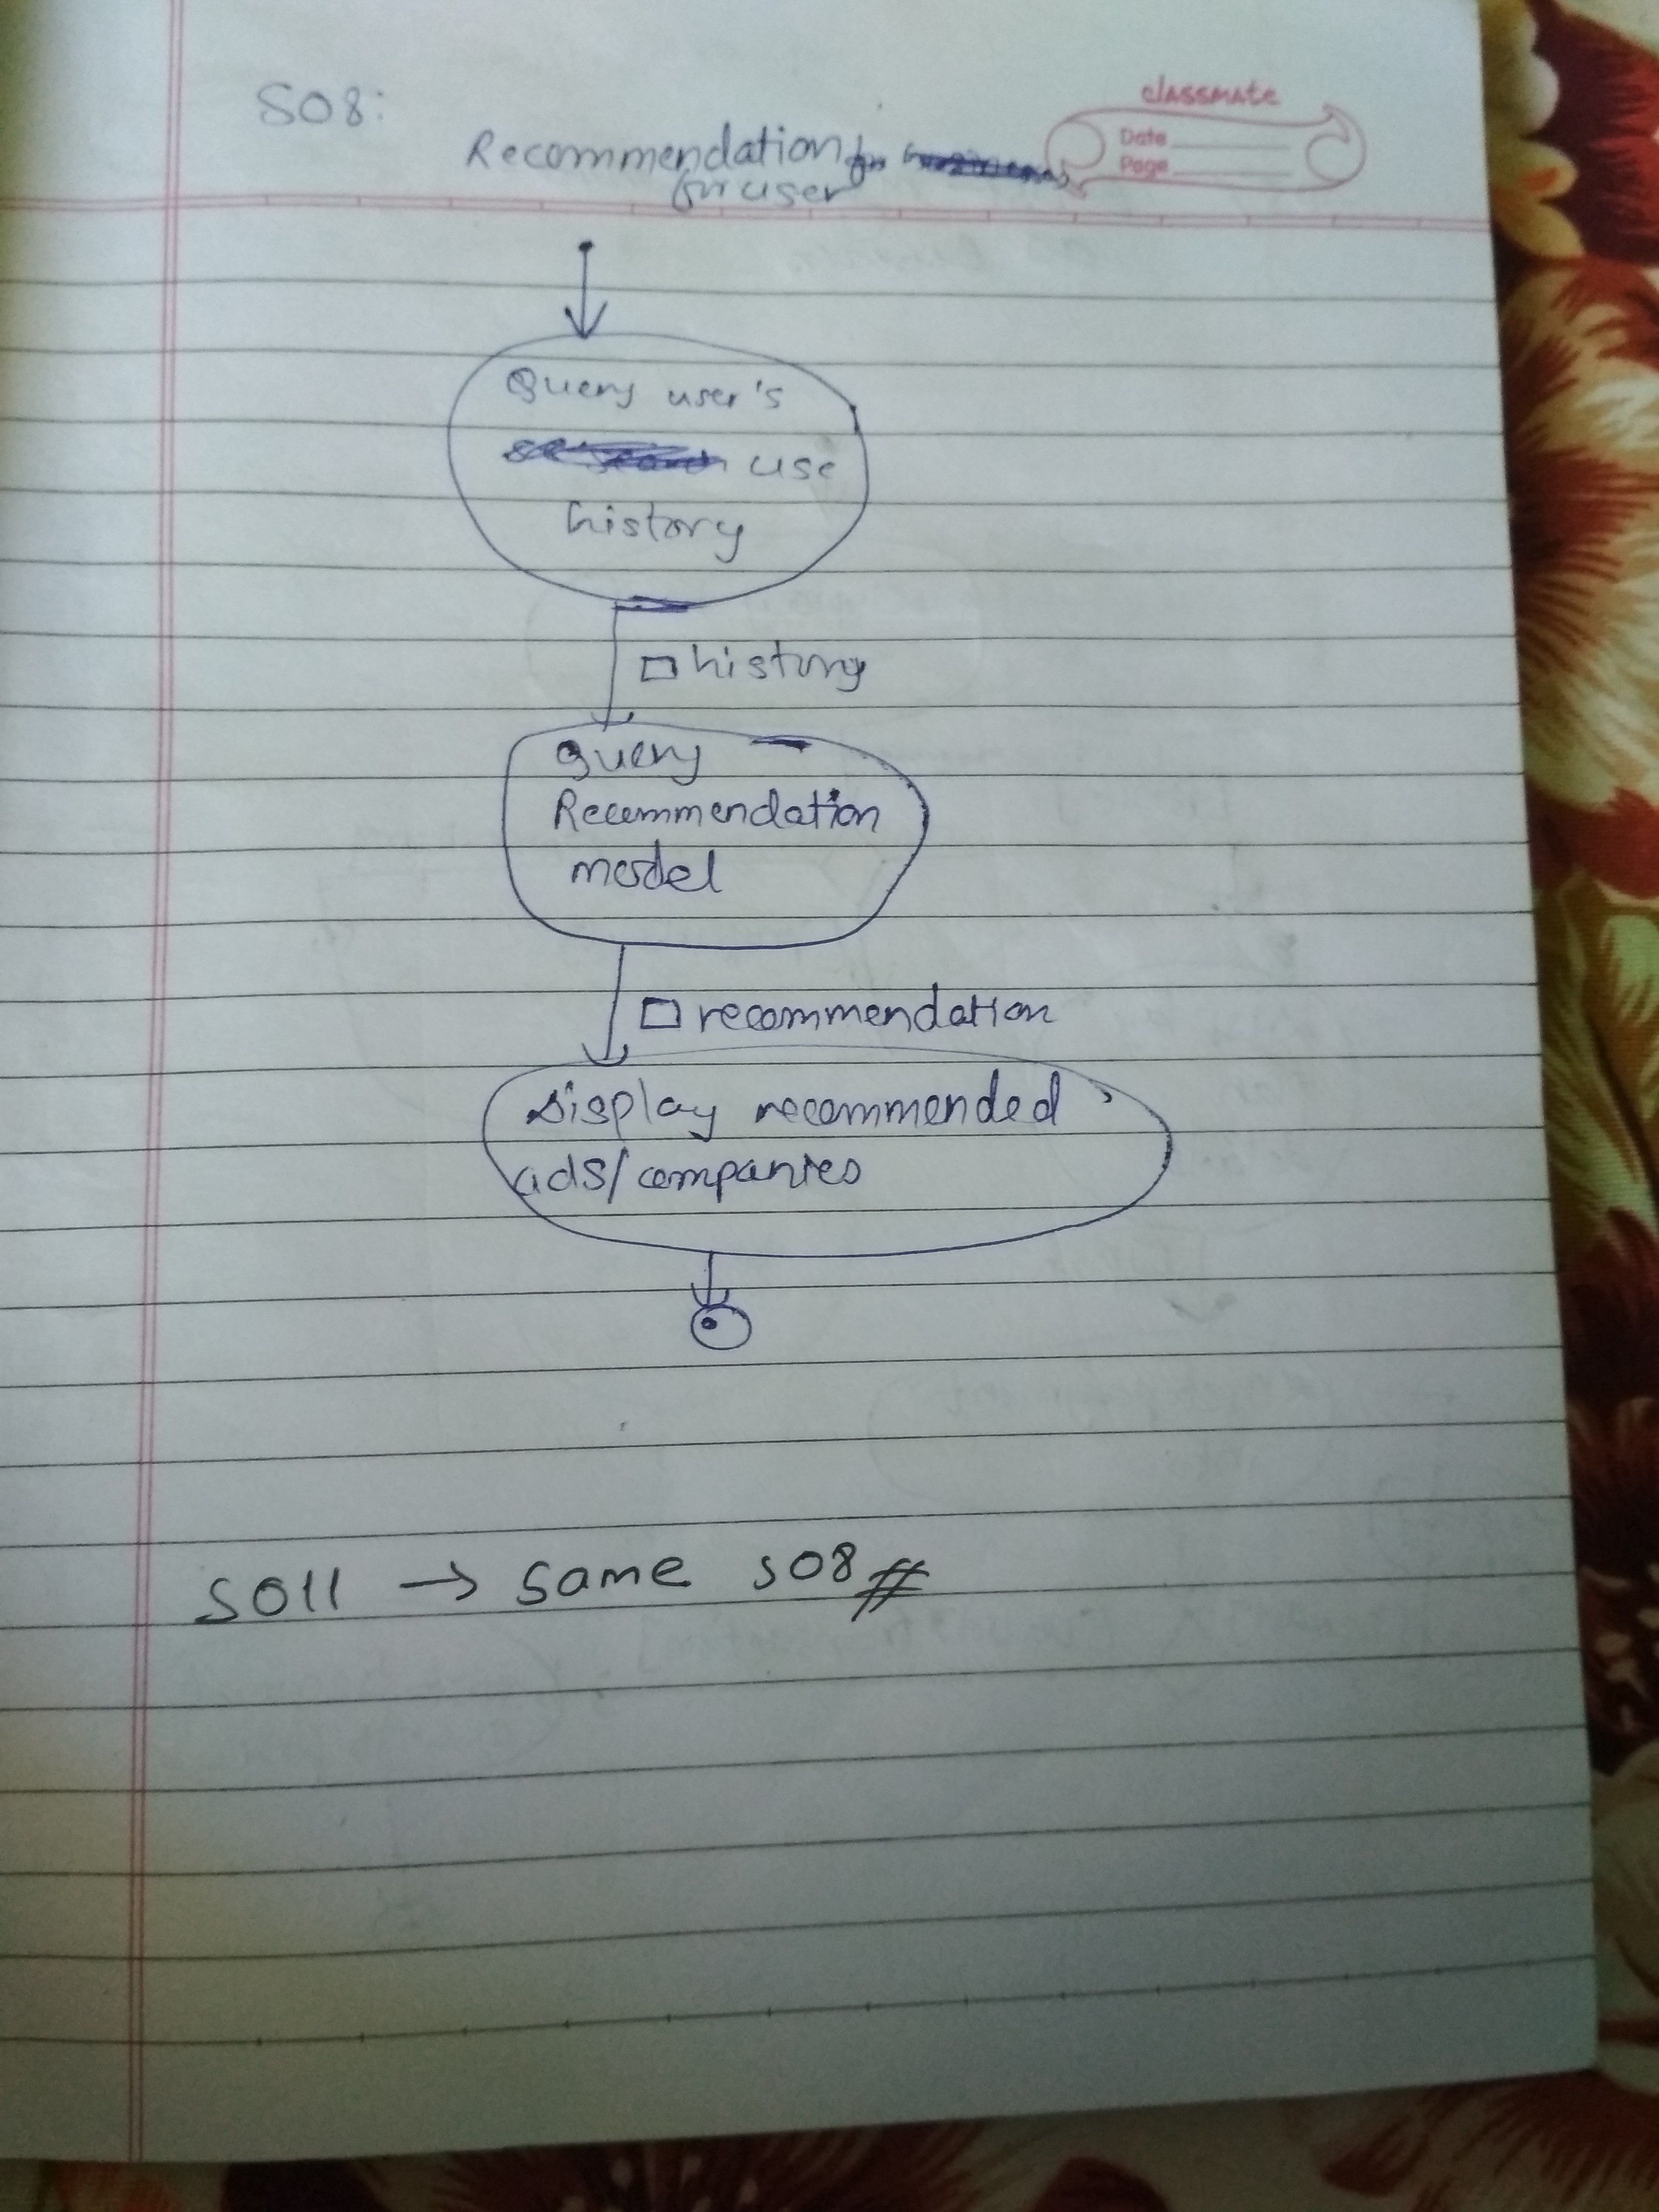 classmate
Date
Page
S08:
Recommendation for
for user
Query user's
use
history
history
Query
Recommendation
model
recommendation
Display recommended
ads/companies
S011 → Same S08